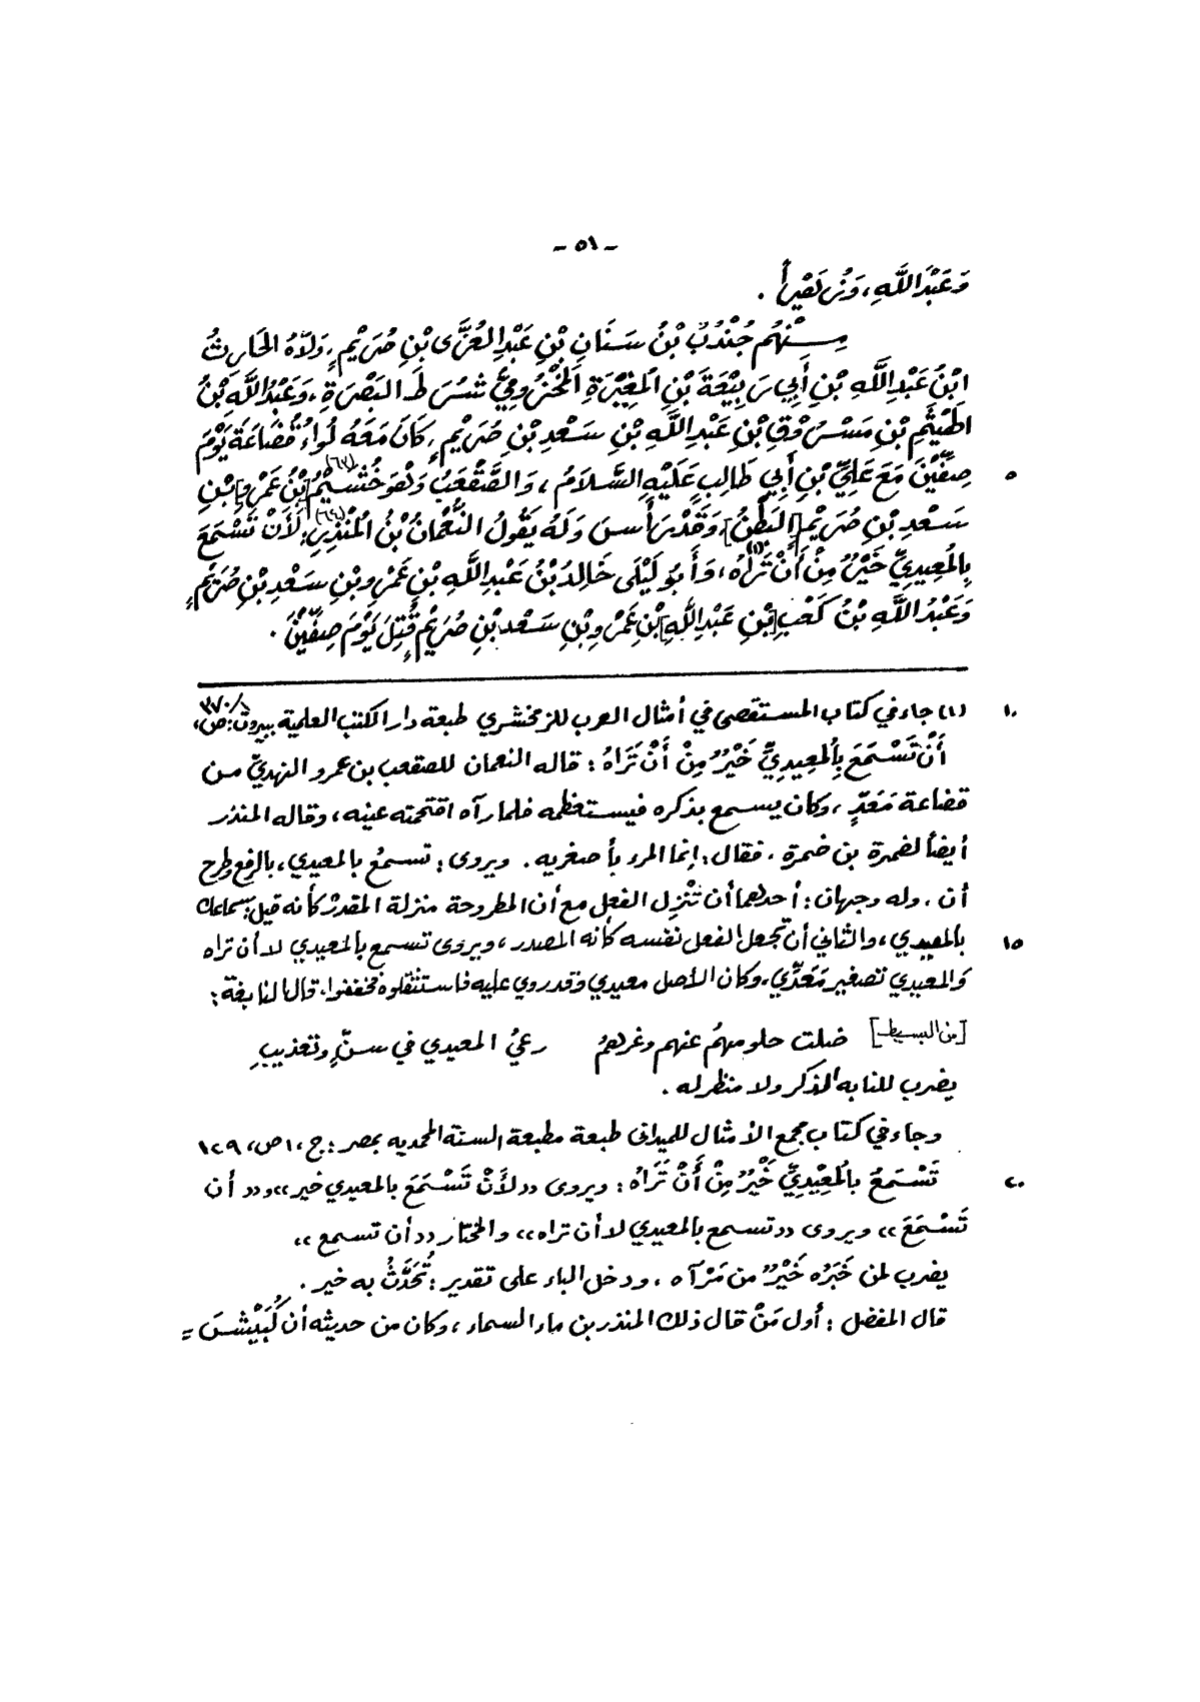 - ٥١ -
وَعَبْدَاللَّهِ، وَزُهَيْراً .
مِنْهُم جُنْدُبُ بْنُ سِنَانِ بْنِ عَبْدِ العُزَّى بْنِ صُرَيْمٍ، وَلَّاهُ الحَارِثُ
ابْنُ عَبْدِ اللَّهِ بْنِ أَبِي رَبِيْعَةَ بْنِ المُغِيْرَةِ المَخْزُومِيُّ شُرَطَ البَصْرَةِ، وَعَبْدُ اللَّهِ بْنُ
الهَيْثَمِ بْنِ مَسْرُوقِ بْنِ عَبْدِ اللَّهِ بْنِ سَعْدِ بْنِ صُرَيْمٍ، كَانَ مَعَهُ لِوَاءُ قُضَاعَةَ يَوْمَ
صِفِّيْنَ مَعَ عَلِيِّ بْنِ أَبِي طَالِبٍ عَلَيْهِ السَّلَامُ، وَالصَّقْعَبُ وَهُوَ خُشَيْمُ (٦٣) [بْنُ عَمْرِو] بْنِ ٥
سَعْدِ بْنِ صُرَيْمٍ [البَطْنُ]، وَقَدْ رَأَسَ وَلَهُ يَقُولُ النُّعْمَانُ بْنُ المُنْذِرِ (٦٤): لَأَنْ تَسْمَعَ
بِالمُعِيدِيِّ خَيْرٌ مِنْ أَنْ تَرَاهُ (١)، وَأَبُو لَيْلَى خَالِدُ بْنُ عَبْدِ اللَّهِ بْنِ عَمْرِو بْنِ سَعْدِ بْنِ صُرَيْمٍ
وَعَبْدُ اللَّهِ بْنُ كَعْبِ [بْنِ عَبْدِ اللَّهِ] بْنِ عَمْرِو بْنِ سَعْدِ بْنِ صُرَيْمٍ قُتِلَ يَوْمَ صِفِّيْنَ .
(١) جاء في كتاب المستقصى في أمثال العرب للزمخشري طبعة دار الكتب العلمية ببيروت: ص، ٣٧٠/١ ١٠
أَنْ تَسْمَعَ بِالمُعِيدِيِّ خَيْرٌ مِنْ أَنْ تَرَاهُ : قاله النعمان للصقعب بن عمرو النهديّ من
قضاعة مَعَدٍّ، وكان يسمع بذكره فيستعظمه فلما رآه اقتحمته عينه، وقاله المنذر
أيضاً لضمرة بن ضمرة . فقال: إنما المرء بأصغريه . ويروى : تسمعُ بالمعيدي، بالرفع وطرح
أن ، وله وجهان : أحدهما أن تُنْزِل الفعل مع أن المطروحة منزلة المقدر كأنه قيل: سماعك
بالمعيدي، والثاني أن تجعل الفعل نفسه كأنه المصدر، ويروى تسمع بالمعيدي لا أن تراه ١٥
والمعيدي تصغير مَعَدِّي، وكان الأصل معيدي وقد روي عليه فاستثقلوه فخففوا، قال النابغة :
[من البسيط] ضلت حلومهمُ عنهم وغرهمُ رعيُ المعيدي في سنٍّ وتعذيبِ
يضرب للنابه الذكر ولا منظر له .
وجاء في كتاب مجمع الأمثال للميداني طبعة مطبعة السنة المحمديه بمصر : ج، ١ ص، ١٢٩
تَسْمَعُ بالمُعِيْدِيِّ خَيْرٌ مِنْ أَنْ تَرَاهُ : ويروى «لأَنْ تَسْمَعَ بالمعيدي خير» و« أن ٢٠
تَسْمَعَ» ويروى «تسمع بالمعيدي لا أن تراه» والمختار «أن تسمع»
يضرب لمن خَبَرُه خَيْرٌ من مَرْآه ، ودخل الباء على تقدير : تُحَدَّثُ به خير .
قال المفضل : أول مَنْ قال ذلك المنذر بن ماء السماء ، وكان من حديثه أن كُبَيْشَ =